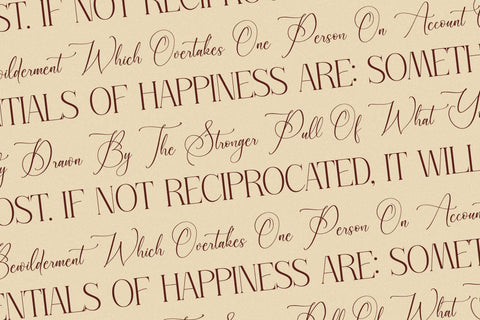 ST. IF NOT RECIPROC
Bewilderment Which Overtakes One Person On Account
NTIALS OF HAPPINESS ARE: SOMETH
y Drawn By The Stronger Pull Of What Y
OST. IF NOT RECIPROCATED, IT WILL
Bewilderment Which Overtakes One Person On Accoun
ENTIALS OF HAPPINESS ARE: SOMET
The Stronger Pull Of What